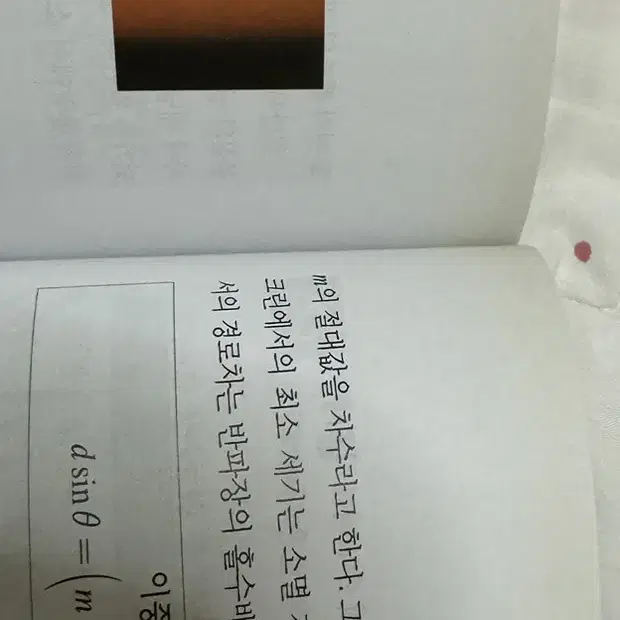 m의 절대값을 차수라고 한다. 그
크린에서의 최소 세기는 소멸
서의 경로차는 반파장의 홀수배
이중
d sin θ = (m